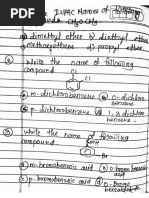 IUPAC Names of
CH3OCH3
a) dimethyl ether b) diethyl ether
methoxyethane d) propyl ether
② Write the name of following
compound.
Cl
Cl
a) m-dichlorobenzene b) o-dichloro
benzene.
c) p-dichlorobenzene d) 1,3 dichloro
benzene.
③ Write the name of following
compound
a) m-bromobenzoic acid b) o-bromo
benzoic acid
c) p-bromobenzoic acid d) Bromo